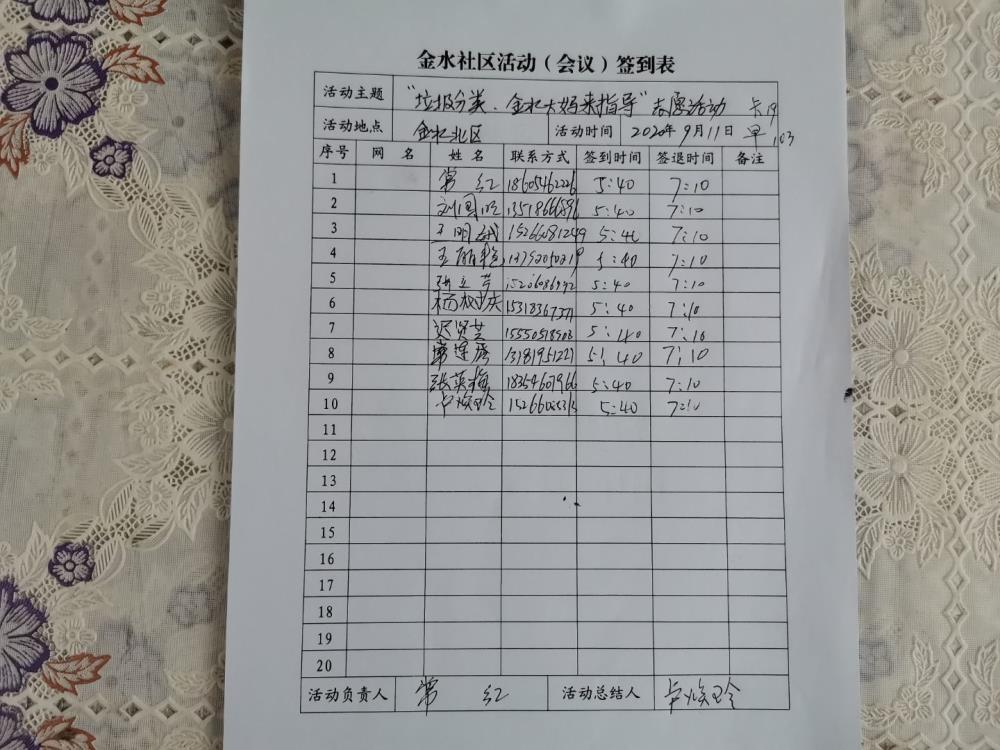 金水社区活动（会议）签到表
活动主题 “垃圾分类．金水大妈来指导”志愿活动
活动地点 金水北区 活动时间 2020年9月11日 早
序号 网 名 姓 名 联系方式 签到时间 签退时间 备注
1 常 红 18605462226 5:40 7:10
2 5:40 7:10
3 15266081249 5:40 7:10
4 5:40 7:10
5 张立芳 5:40 7:10
6 15318367371 5:40 7:10
7 迟贤芝 15550518908 5:40 7:10
8 13181951221 5:40 7:10
9 张英梅 18354607966 5:40 7:10
10 卢焕玲 5:40 7:10
11
12
13
14
15
16
17
18
19
20
活动负责人 常 红 活动总结人 卢焕玲